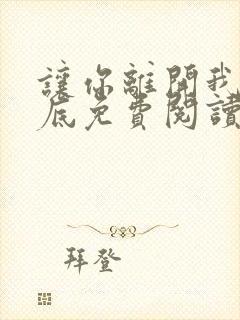 讓你離開我
底免費閱讀
拜登